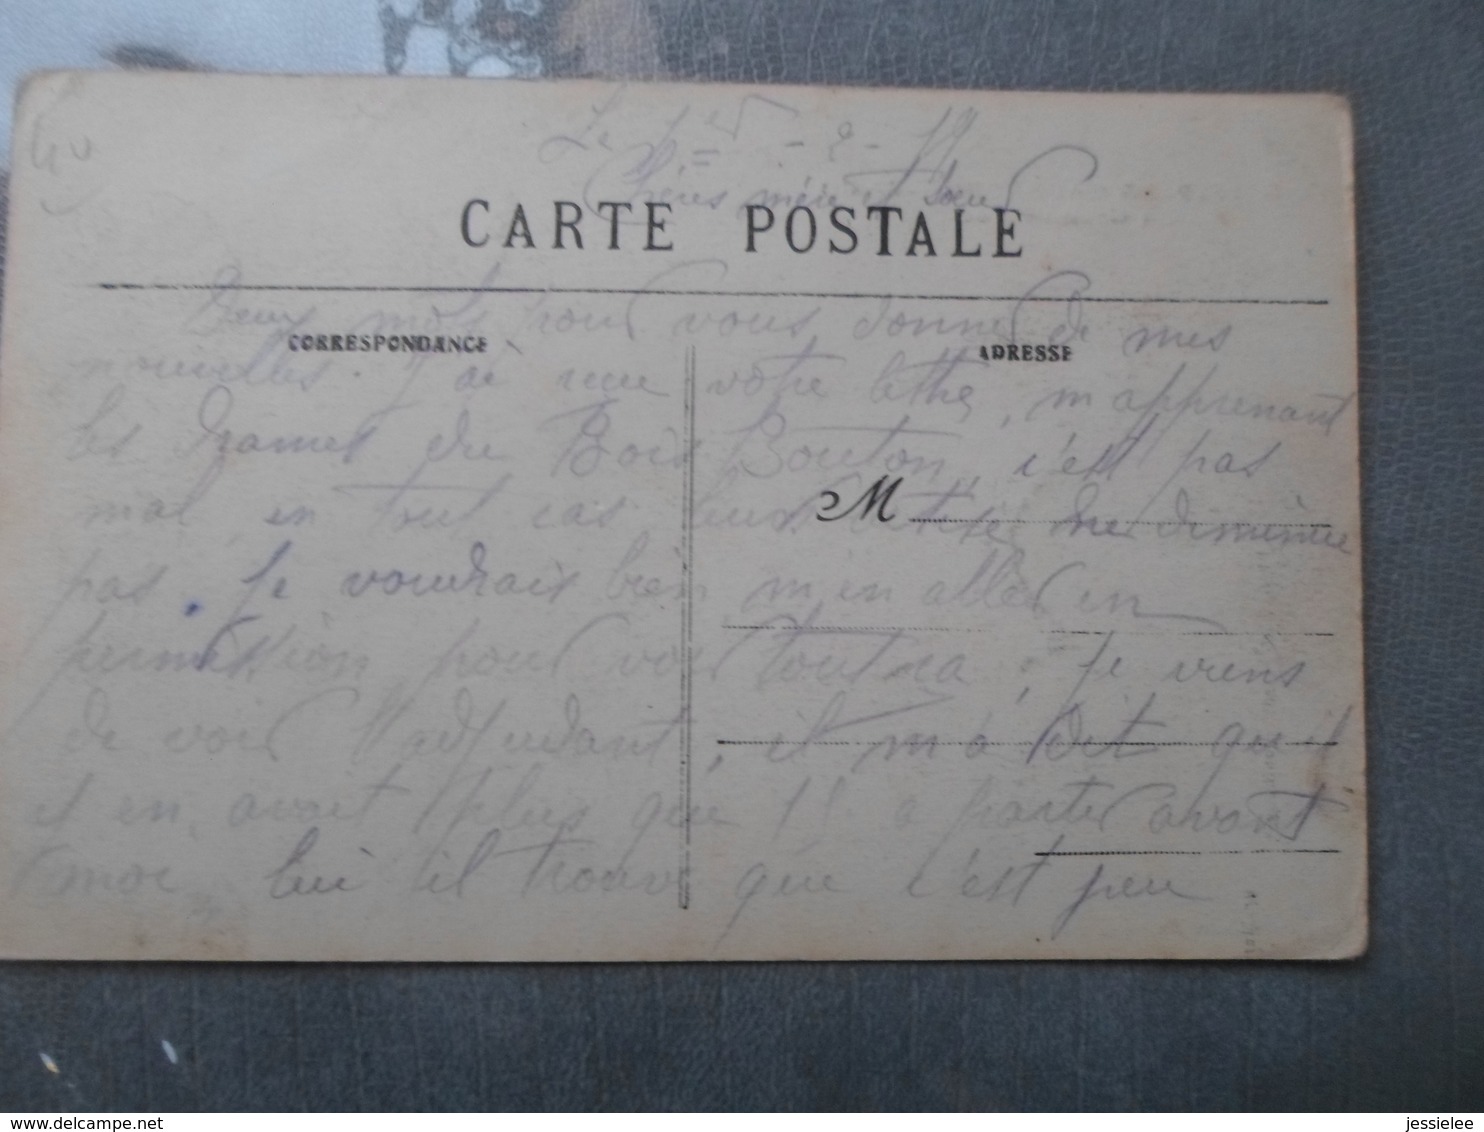 Le 1er - 2 - 19
Chères mère et soeur
CARTE POSTALE
Deux mots pour vous donner de mes
CORRESPONDANCE
ADRESSE
nouvelles. J'ai reçu votre lettre, m'apprenant
les drames du Bois Bouton, c'est pas
mal, en tout cas leurs ne diminue
M
pas. Je voudrais bien m'en aller en
permission pour voir tout ça; je viens
de voir l'adjudant, il m'a dit qu'il
y en avait plus que 15 à partir avant
moi, lui il trouve que c'est peu
delcampe.net
jessielee